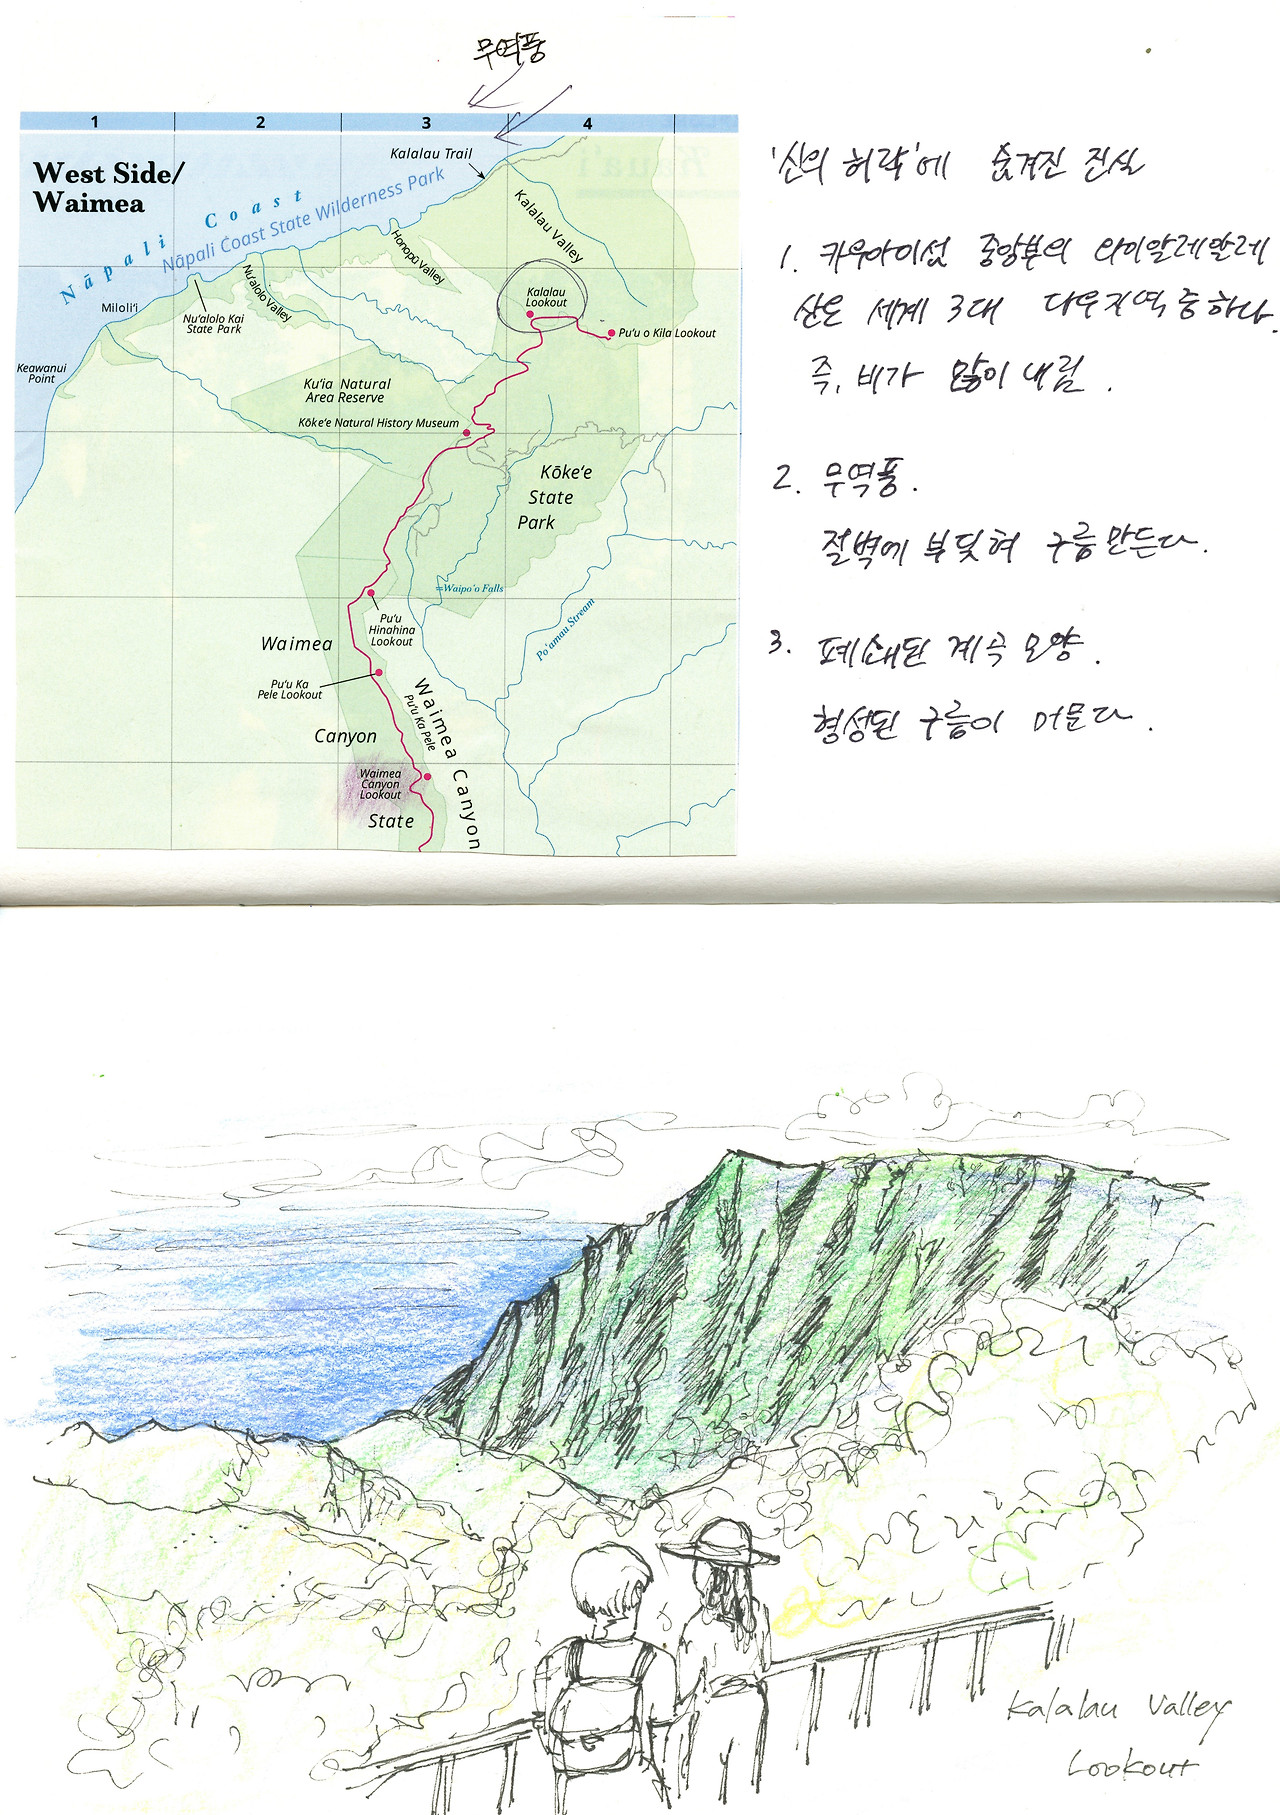 무역풍
1 2 3 4
West Side/
Waimea
Kalalau Trail
Nāpali Coast
Nāpali Coast State Wilderness Park
Kalalau Valley
Honopū Valley
Nu'alolo Valley
Miloli'i
Nu'alolo Kai
State Park
Kalalau
Lookout
Pu'u o Kila Lookout
Keawanui
Point
Ku'ia Natural
Area Reserve
Kōke'e Natural History Museum
Kōke'e
State
Park
Waipo'o Falls
Po'amau Stream
Pu'u
Hinahina
Lookout
Waimea
Pu'u Ka
Pele Lookout
Waimea Canyon
Pu'u Ka Pele
Canyon
Waimea
Canyon
Lookout
State
'신의 허락'에 숨겨진 진실
1. 카우아이섬 중앙부의 와이알레알레
산은 세계 3대 다우지역 중 하나.
즉, 비가 많이 내림.
2. 무역풍.
절벽에 부딪혀 구름 만든다.
3. 폐쇄된 계곡 모양.
형성된 구름이 머문다.
Kalalau Valley
Lookout